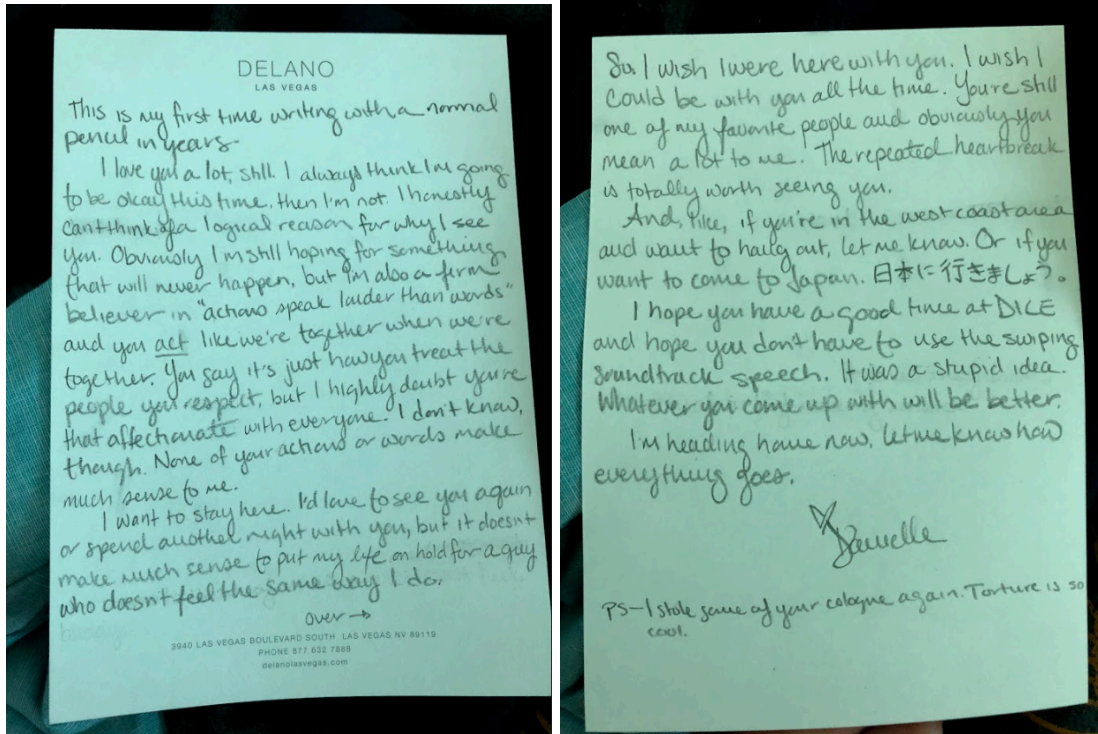 DELANO
LAS VEGAS
This is my first time writing with a normal
pencil in years.
I love you a lot, still. I always think I'm going
to be okay this time, then I'm not. I honestly
can't think of a logical reason for why I see
you. Obviously I'm still hoping for something
that will never happen, but I'm also a firm
believer in "actions speak louder than words"
and you act like we're together when we're
together. You say it's just how you treat the
people you respect, but I highly doubt you're
that affectionate with everyone. I don't know,
though. None of your actions or words make
much sense to me.
I want to stay here. I'd love to see you again
or spend another night with you, but it doesn't
make much sense to put my life on hold for a guy
who doesn't feel the same way I do.
over →
3940 LAS VEGAS BOULEVARD SOUTH LAS VEGAS NV 89119
PHONE 877 632 7888
delanolasvegas.com
So. I wish I were here with you. I wish I
could be with you all the time. You're still
one of my favorite people and obviously you
mean a lot to me. The repeated heartbreak
is totally worth seeing you.
And, like, if you're in the west coast area
and want to hang out, let me know. Or if you
want to come to Japan. 日本に行きましょう。
I hope you have a good time at DICE
and hope you don't have to use the swiping
soundtrack speech. It was a stupid idea.
Whatever you come up with will be better.
I'm heading home now, let me know how
everything goes.
Danielle
PS-I stole some of your cologne again. Torture is so
cool.